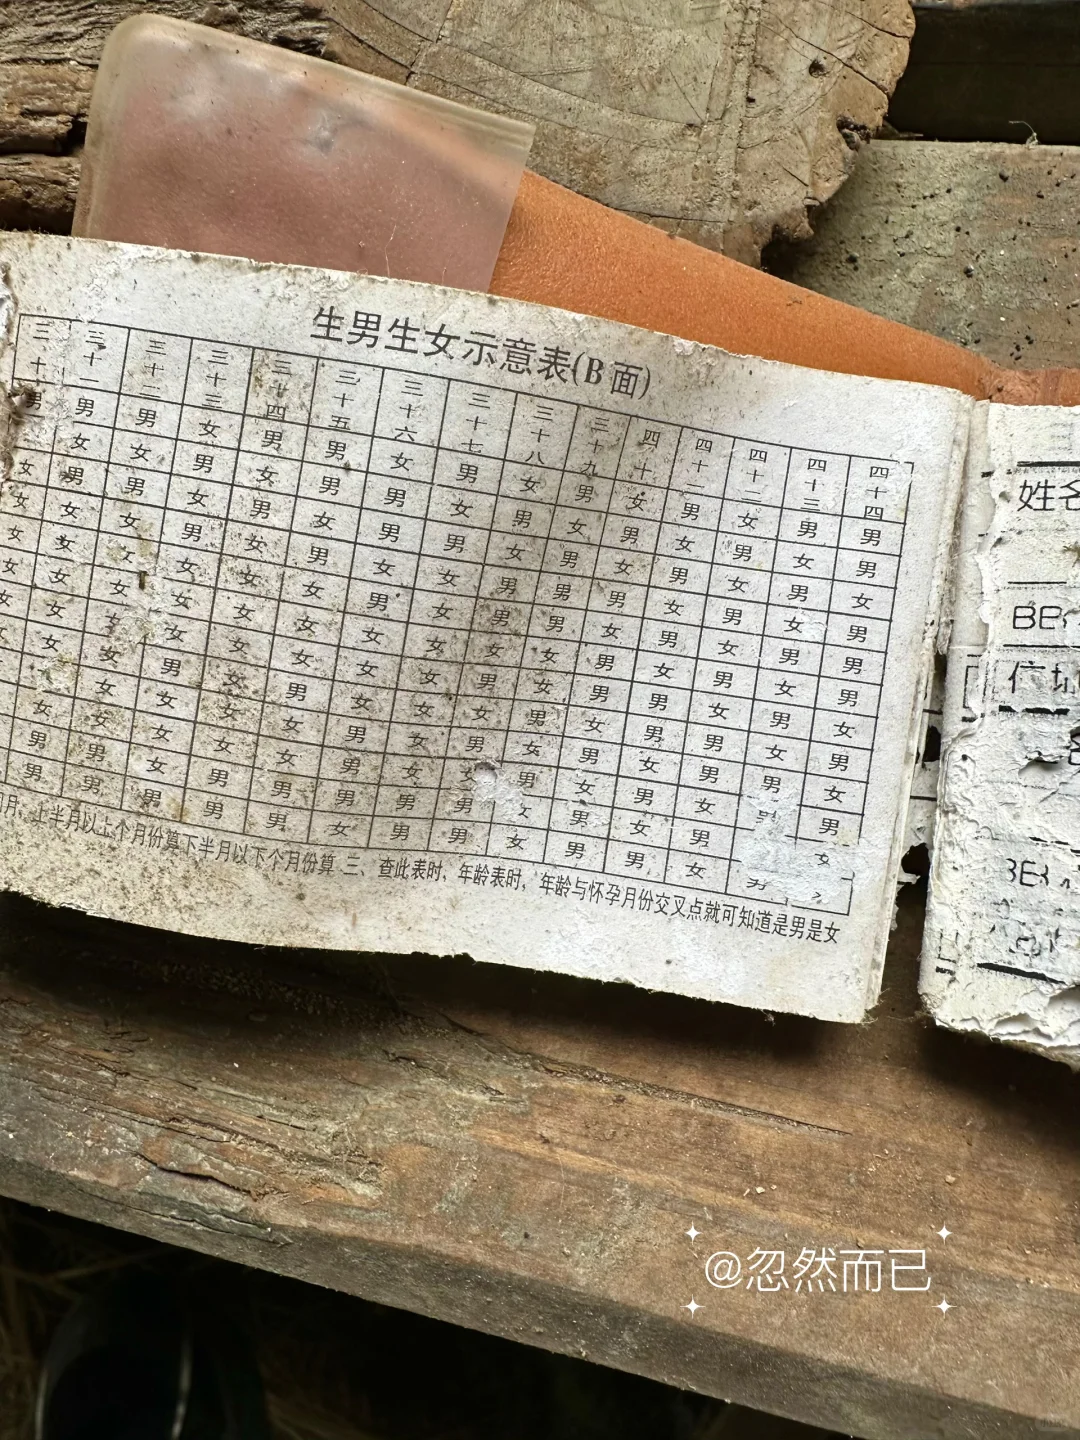 生男生女示意表(B面)
三十 三十一 三十二 三十三 三十四 三十五 三十六 三十七 三十八 三十九 四十 四十一 四十二 四十三 四十四
男 男 男 女 男 男 女 男 女 男 女 男 女 男 男
女 女 男 女 男 男 女 男 女 男 女 男 女 男
女 男 男 女 男 女 男 男 女 男 女 男 女 男 女
女 女 女 男 女 男 女 女 男 男 男 女 女 女 男
女 女 女 女 女 女 男 女 男 男 女 男 男 男 男
女 女 女 女 女 女 女 女 女 女 男 女 女 女 男
女 女 女 女 女 女 女 男 女 男 男 女 男 女
女 女 男 女 男 女 女 女 男 女 男 女 女 男
女 女 女 女 男 女 男 女 男 女 男 男 男
女 女 女 女 女 男 女 女 男 女 男 女
男 男 女 男 女 男 男 男 女 女 女 女
男 男 男 男 男 女 男 男 女 男 男 女 男
月、上半月以上个月份算下半月以下个月份算 三、查此表时，年龄表时，年龄与怀孕月份交叉点就可知道是男是女
姓名
@忽然而已